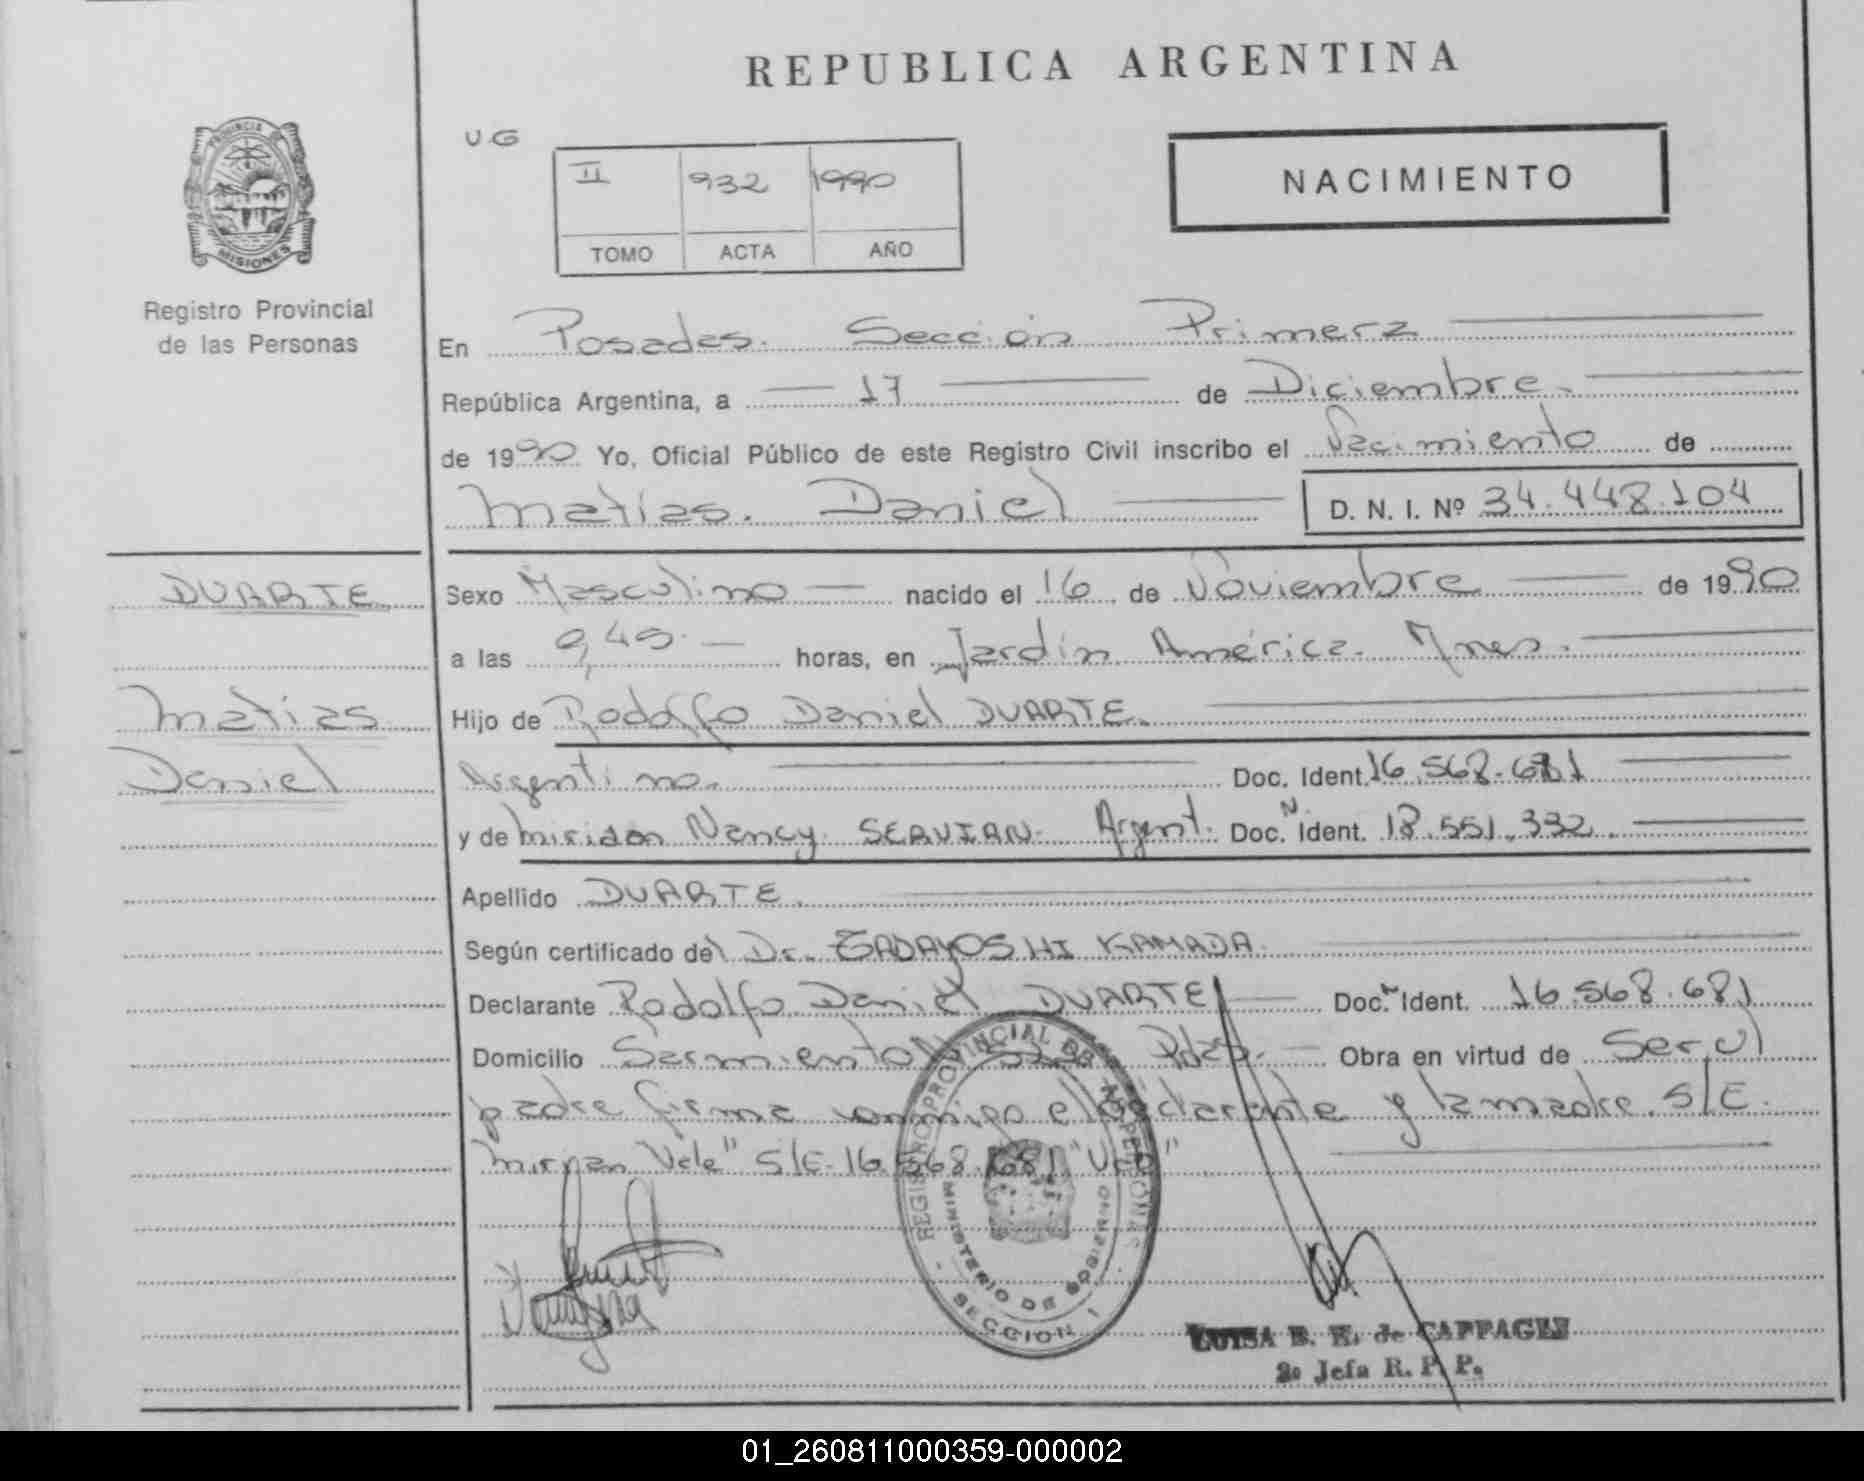 REPUBLICA ARGENTINA
U.G
II 932 1990
TOMO ACTA AÑO
NACIMIENTO
PROVINCIA
MISIONES
Registro Provincial
de las Personas
En Posadas. Sección Primera
República Argentina, a 17 de Diciembre.
de 1990 Yo, Oficial Público de este Registro Civil inscribo el Nacimiento de
Matías. Daniel D. N. I. Nº 34.448.104
DUARTE
Matias
Daniel
Sexo Masculino nacido el 16 de Noviembre de 1990
a las 9,45 horas, en Jardín América. Mnes.
Hijo de Rodolfo Daniel DUARTE.
Argentino. Doc. Ident. 16.568.681
y de Miriam Nancy SERVIAN. Argent. Doc. N. Ident. 18.551.332.
Apellido DUARTE.
Según certificado del Dr. TADAYOSHI KAMADA.
Declarante Rodolfo Daniel DUARTE Doc. N Ident. 16.568.681
Domicilio Sarmiento Pdas. Obra en virtud de Ser, el
padre firma conmigo el declarante y la madre. S/E.
"Vale" S/E. 16.568.681 "Vale"
REGISTRO PROVINCIAL DE LAS PERSONAS
MINISTERIO DE GOBIERNO
SECCION 1
LUISA E. K. de
2º Jefa R. P. P.
01_260811000359-000002